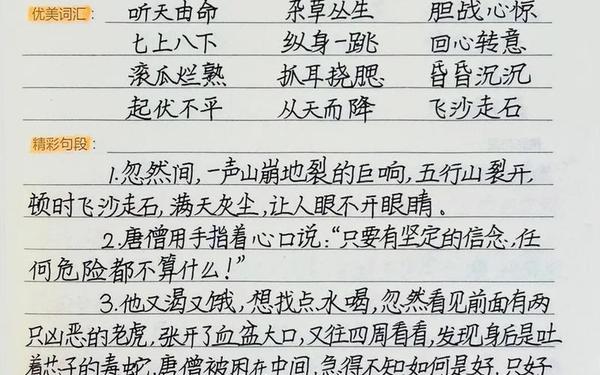 优美词汇： 听天由命 杂草丛生 胆战心惊
七上八下 纵身一跳 回心转意
滚瓜烂熟 抓耳挠腮 昏昏沉沉
起伏不平 从天而降 飞沙走石
精彩句段：
1.忽然间,一声山崩地裂的巨响,五行山裂开,
顿时飞沙走石,满天灰尘,让人眼不开眼睛。
2.唐僧用手指着心口说:“只要有坚定的信念,任
何危险都不算什么!”
3.他又渴又饿,想找点水喝,忽然看见前面有两
只凶恶的老虎,张开了血盆大口,又往四周看看,发现身后是吐
着芯子的毒蛇,唐僧被困在中间,急得不知如何是好,只好